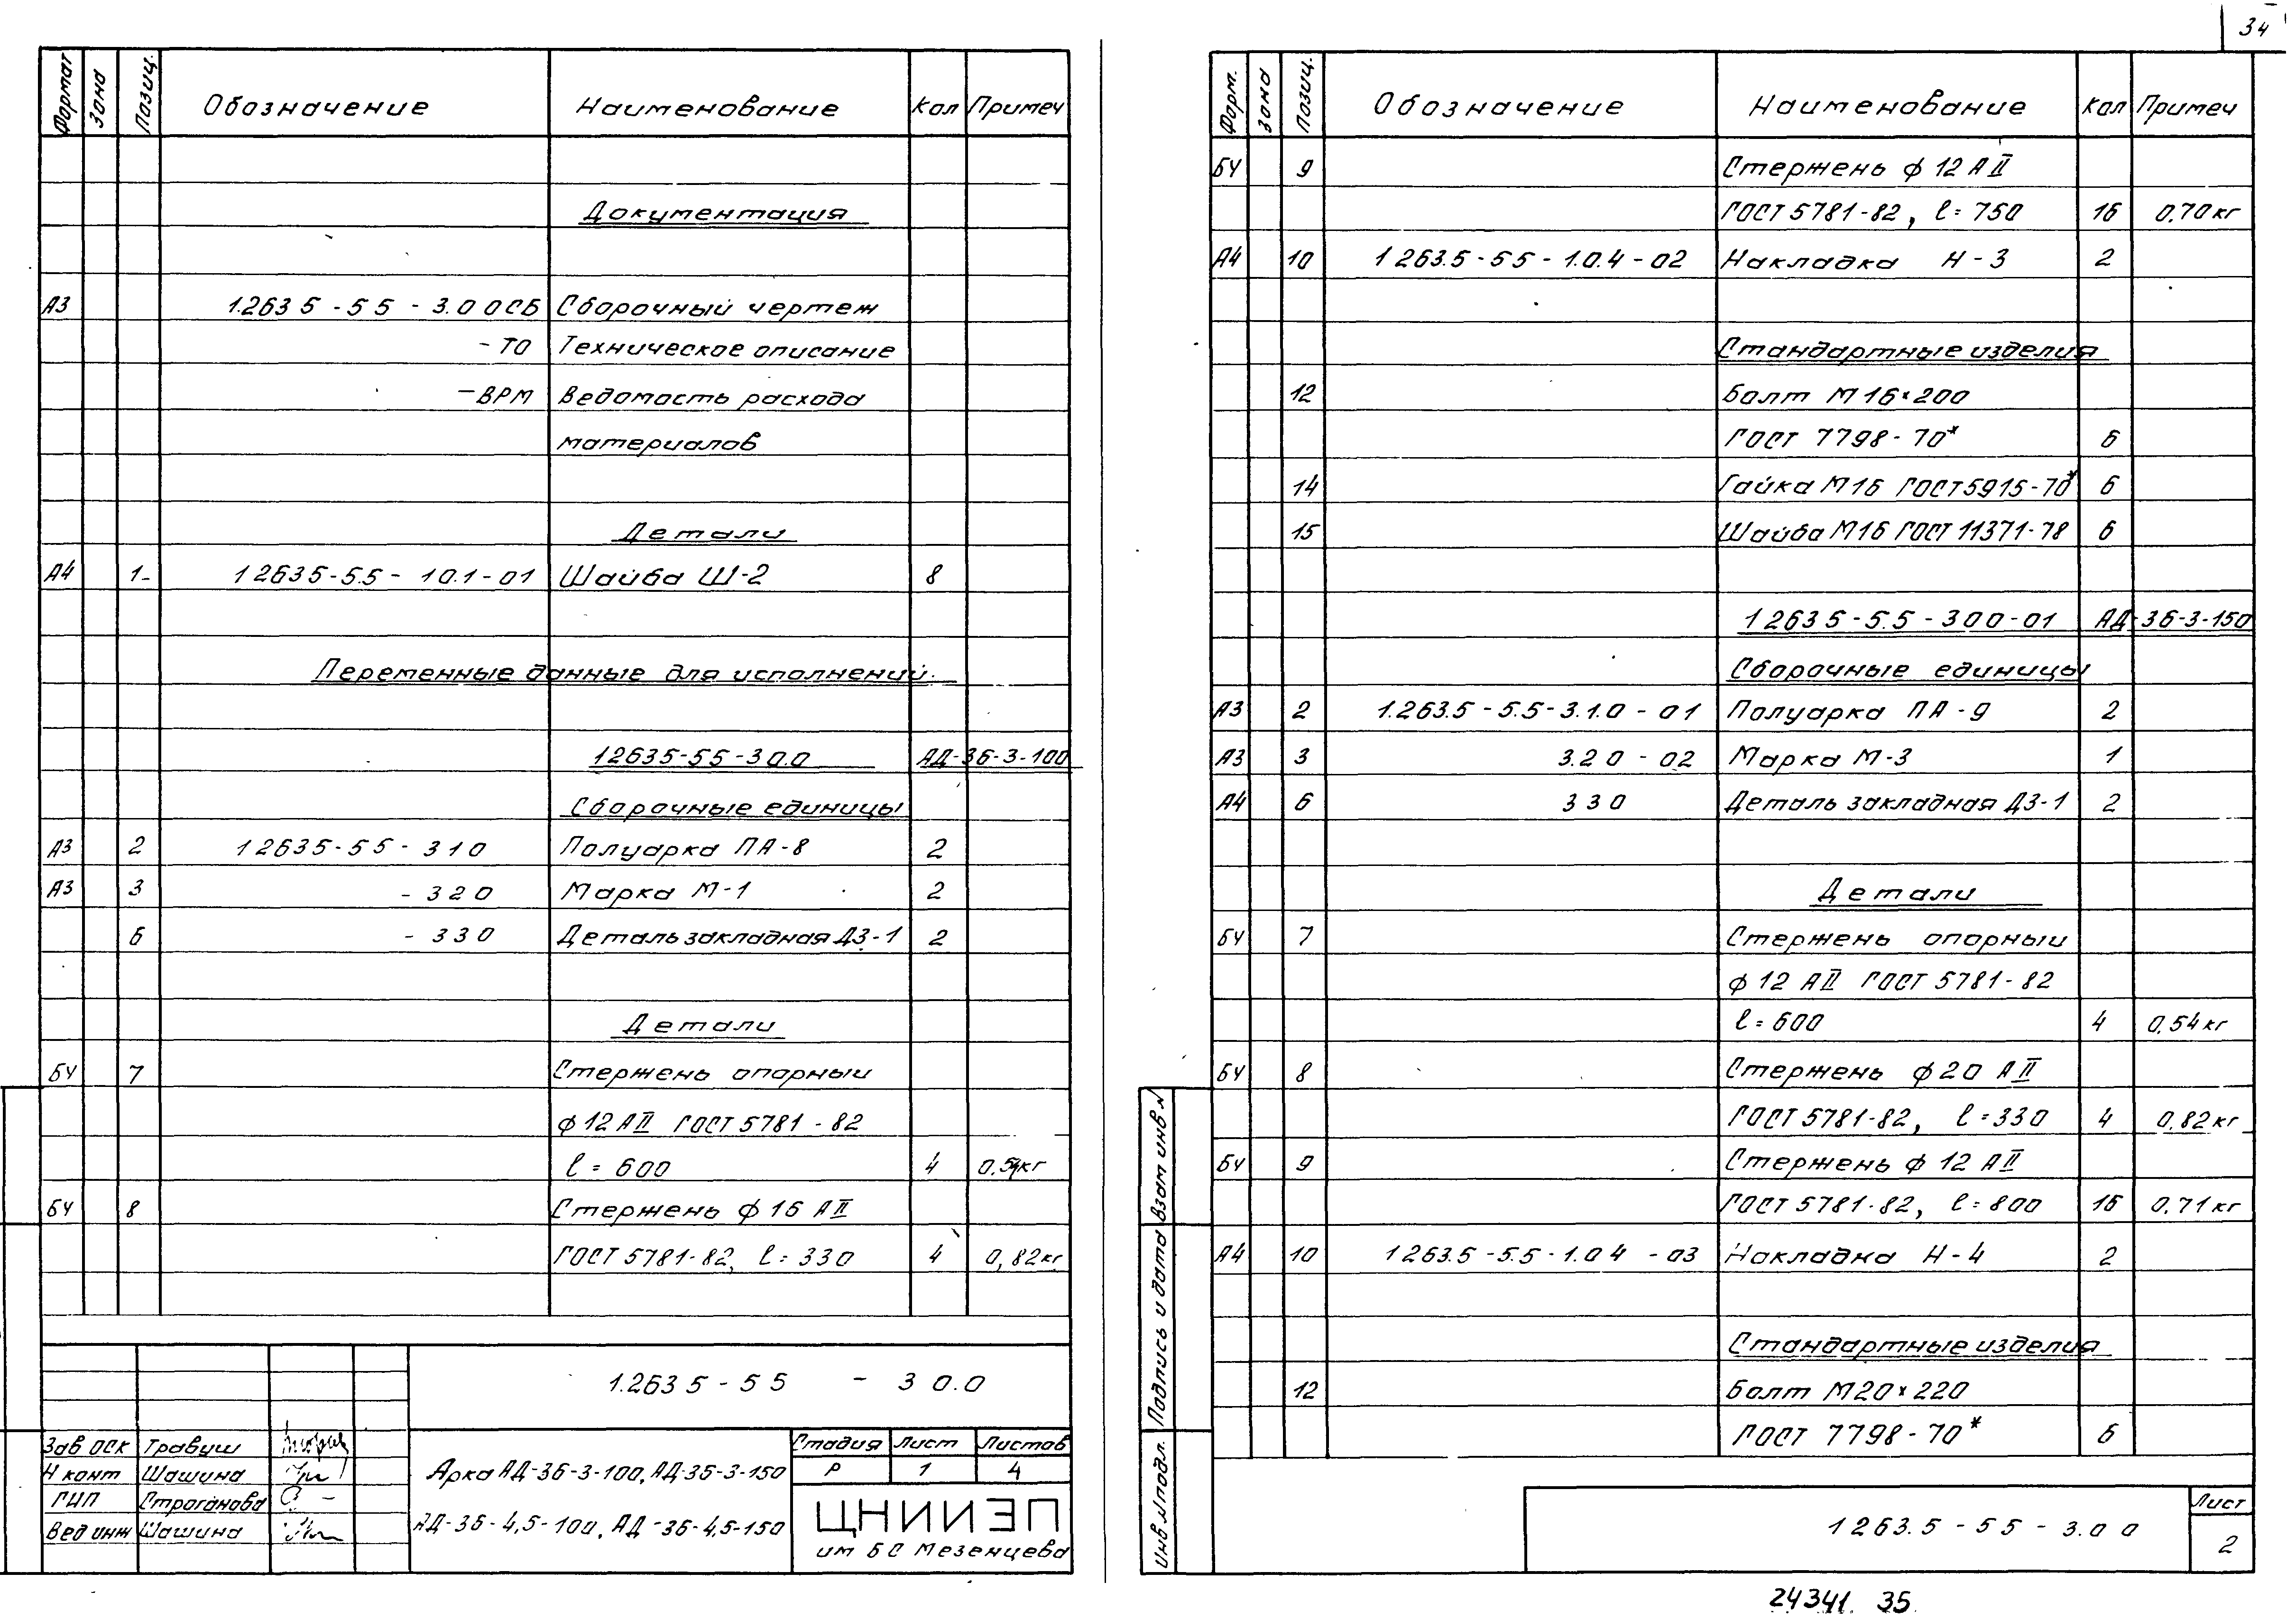 34
Формат Зона Позиц. Обозначение Наименование Кол Примеч
Документация
А3 1.263 5 - 5 5 - 3.0 0 СБ Сборочный чертеж
- ТО Техническое описание
- ВРМ Ведомость расхода
материалов
Детали
А4 1 1 2635-5.5 - 10.1-01 Шайба Ш-2 8
Переменные данные для исполнений.
12635-55-30.0 АД-36-3-100
Сборочные единицы
А3 2 12635-55-310 Полуарка ПА-8 2
А3 3 - 320 Марка М-1 2
6 - 330 Деталь закладная ДЗ-1 2
Детали
БЧ 7 Стержень опорный
ф 12 АII ГОСТ 5781-82
l = 600 4 0.54кг
БЧ 8 Стержень ф 16 АII
ГОСТ 5781-82, l = 330 4 0,82кг
1.263 5 - 5 5 - 3 0.0
Зав ОСК Травуш
Н конт Шашина
ГИП Строганова
Вед инж Шашина
Арка АД-36-3-100, АД-36-3-150
АД-36-4,5-100, АД-36-4,5-150
Стадия Лист Листов
Р 1 4
ЦНИИЭП
им Б С Мезенцева
Форм. Зона Позиц. Обозначение Наименование Кол Примеч
БЧ 9 Стержень ф 12 АII
ГОСТ 5781-82, l = 750 16 0,70кг
А4 10 1 263.5-55-1.0.4-02 Накладка Н-3 2
Стандартные изделия
12 Болт М16×200
ГОСТ 7798-70* 6
14 Гайка М16 ГОСТ 5915-70* 6
15 Шайба М16 ГОСТ 11371-78 6
1 263 5-5.5-300-01 АД-36-3-150
Сборочные единицы
А3 2 1.263.5-5.5-3.1.0-01 Полуарка ПА-9 2
А3 3 3.20-02 Марка М-3 1
А4 6 330 Деталь закладная ДЗ-1 2
Детали
БЧ 7 Стержень опорный
ф 12 АII ГОСТ 5781-82
l = 600 4 0,54кг
БЧ 8 Стержень ф 20 АII
ГОСТ 5781-82, l = 330 4 0,82кг
БЧ 9 Стержень ф 12 АII
ГОСТ 5781-82, l = 800 16 0.71кг
А4 10 1 263.5-5.5-1.04-03 Накладка Н-4 2
Стандартные изделия
12 Болт М20×220
ГОСТ 7798-70* 6
Инв.№подл. Подпись и дата Взам инв.№
1 263.5-55-3.00
Лист
2
24341 35